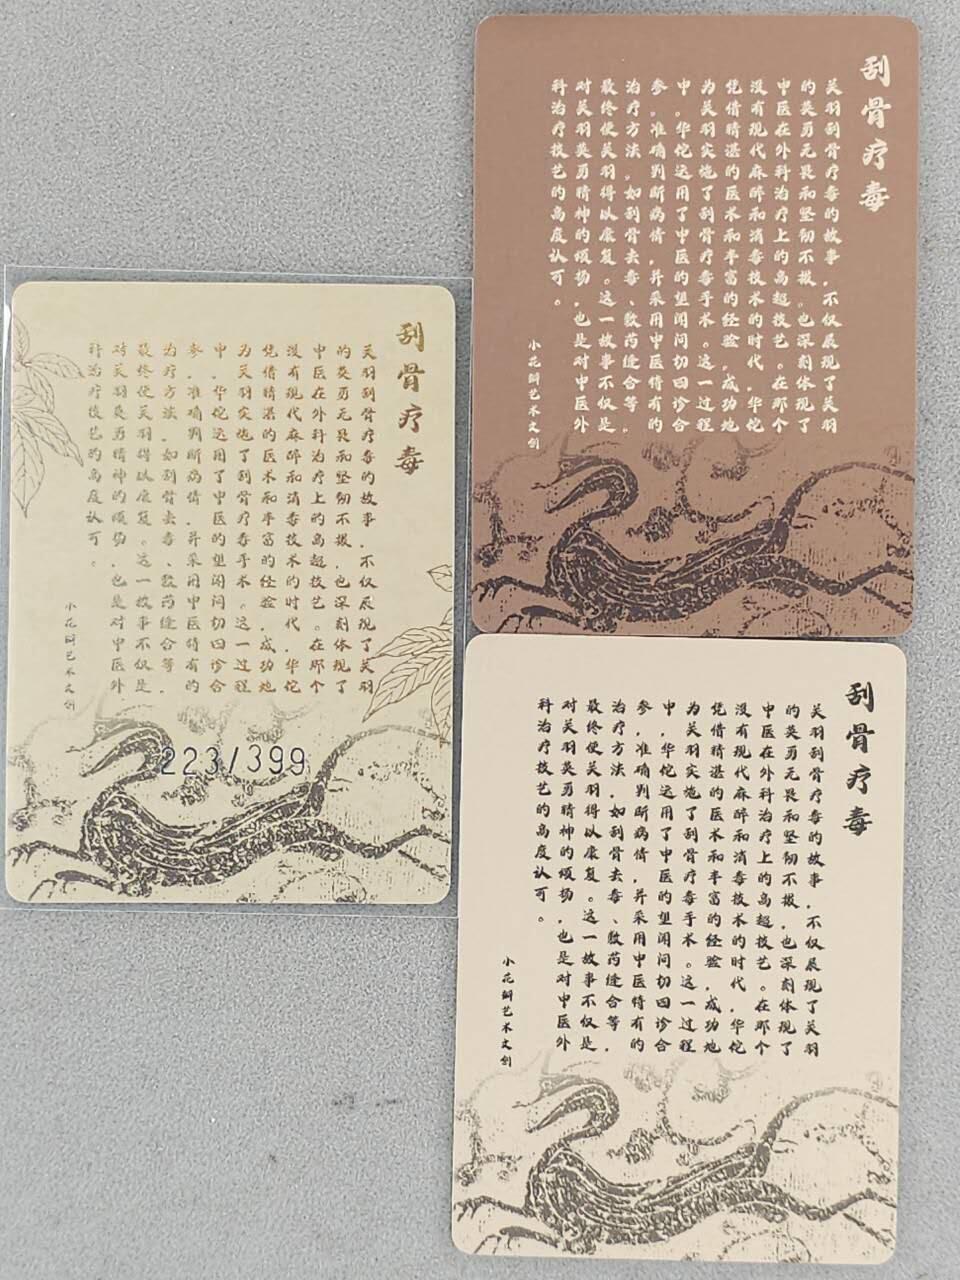 刮骨疗毒
关羽刮骨疗毒的故事，不仅展现了关羽
的英勇无畏和坚韧不拔，也深刻体现了
中医在外科治疗上的高超技艺。在那个
没有现代麻醉和消毒技术的时代，华佗
凭借精湛的医术和丰富的经验，成功地
为关羽实施了刮骨疗毒手术。这一过程
中，华佗运用了中医的望闻问切四诊合
参，准确判断病情，并采用中医特有的
治疗方法，如刮骨去毒、敷药缝合等，
最终使关羽得以康复。这一故事不仅是
对关羽英勇精神的颂扬，也是对中医外
科治疗技艺的高度认可。
小花瓣艺术文创
223/399
刮骨疗毒
关羽刮骨疗毒的故事，不仅展现了关羽
的英勇无畏和坚韧不拔，也深刻体现了
中医在外科治疗上的高超技艺。在那个
没有现代麻醉和消毒技术的时代，华佗
凭借精湛的医术和丰富的经验，成功地
为关羽实施了刮骨疗毒手术。这一过程
中，华佗运用了中医的望闻问切四诊合
参，准确判断病情，并采用中医特有的
治疗方法，如刮骨去毒、敷药缝合等，
最终使关羽得以康复。这一故事不仅是
对关羽英勇精神的颂扬，也是对中医外
科治疗技艺的高度认可。
小花瓣艺术文创
刮骨疗毒
关羽刮骨疗毒的故事，不仅展现了关羽
的英勇无畏和坚韧不拔，也深刻体现了
中医在外科治疗上的高超技艺。在那个
没有现代麻醉和消毒技术的时代，华佗
凭借精湛的医术和丰富的经验，成功地
为关羽实施了刮骨疗毒手术。这一过程
中，华佗运用了中医的望闻问切四诊合
参，准确判断病情，并采用中医特有的
治疗方法，如刮骨去毒、敷药缝合等，
最终使关羽得以康复。这一故事不仅是
对关羽英勇精神的颂扬，也是对中医外
科治疗技艺的高度认可。
小花瓣艺术文创